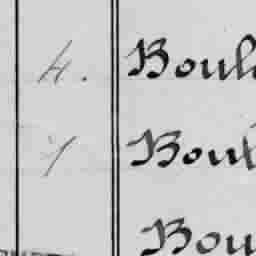 4. Boul
1 Boul
Bou